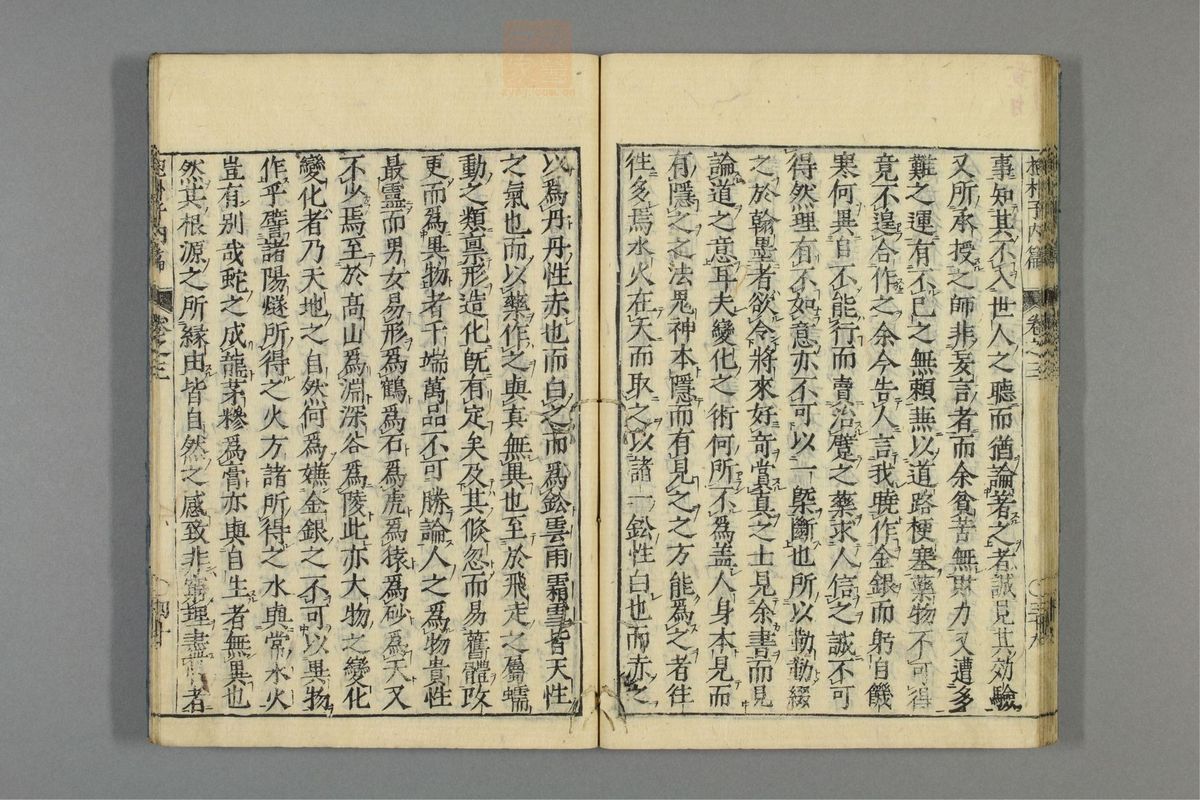 抱朴子内篇 卷之三 三十九
事知其不入世人之聽而猶論著之者誠見其効驗
又所承授之師非妄言者而余貧苦無財力又遭多
難之運有不已之無賴兼以道路梗塞藥物不可得
竟不遑合作之余今告人言我曉作金銀而躬自饑
寒何異自不能行而賣治躄之藥求人信之誠不可
得然理有不如意亦不可以一槩斷也所以勤勤綴
之於翰墨者欲令將來好奇賞真之士見余書而見
論道之意耳夫變化之術何所不為盖人身本見而
有隱之之法鬼神本隱而有見之之方能為之者往
往多焉水火在天而取之以諸一鈆性白也而赤之
以為丹丹性赤也而白之而為鈆雲雨霜雪皆天性
之氣也而以藥作之與真無異也至於飛走之屬蠕
動之類禀形造化既有定矣及其倏忽而易舊體改
更而為異物者千端萬品不可勝論人之為物貴性
最靈而男女易形為鶴為石為虎為猿為砂為天又
不少焉至於髙山為淵深谷為陵此亦大物之變化
變化者乃天地之自然何為嫌金銀之不可以異物
作乎譬諸陽燧所得之火方諸所得之水與常水火
豈有别哉蛇之成龍茅糝為膏亦與自生者無異也
然其根源之所緣由皆自然之感致非窮理盡性者
抱朴子内篇 卷之三 四十